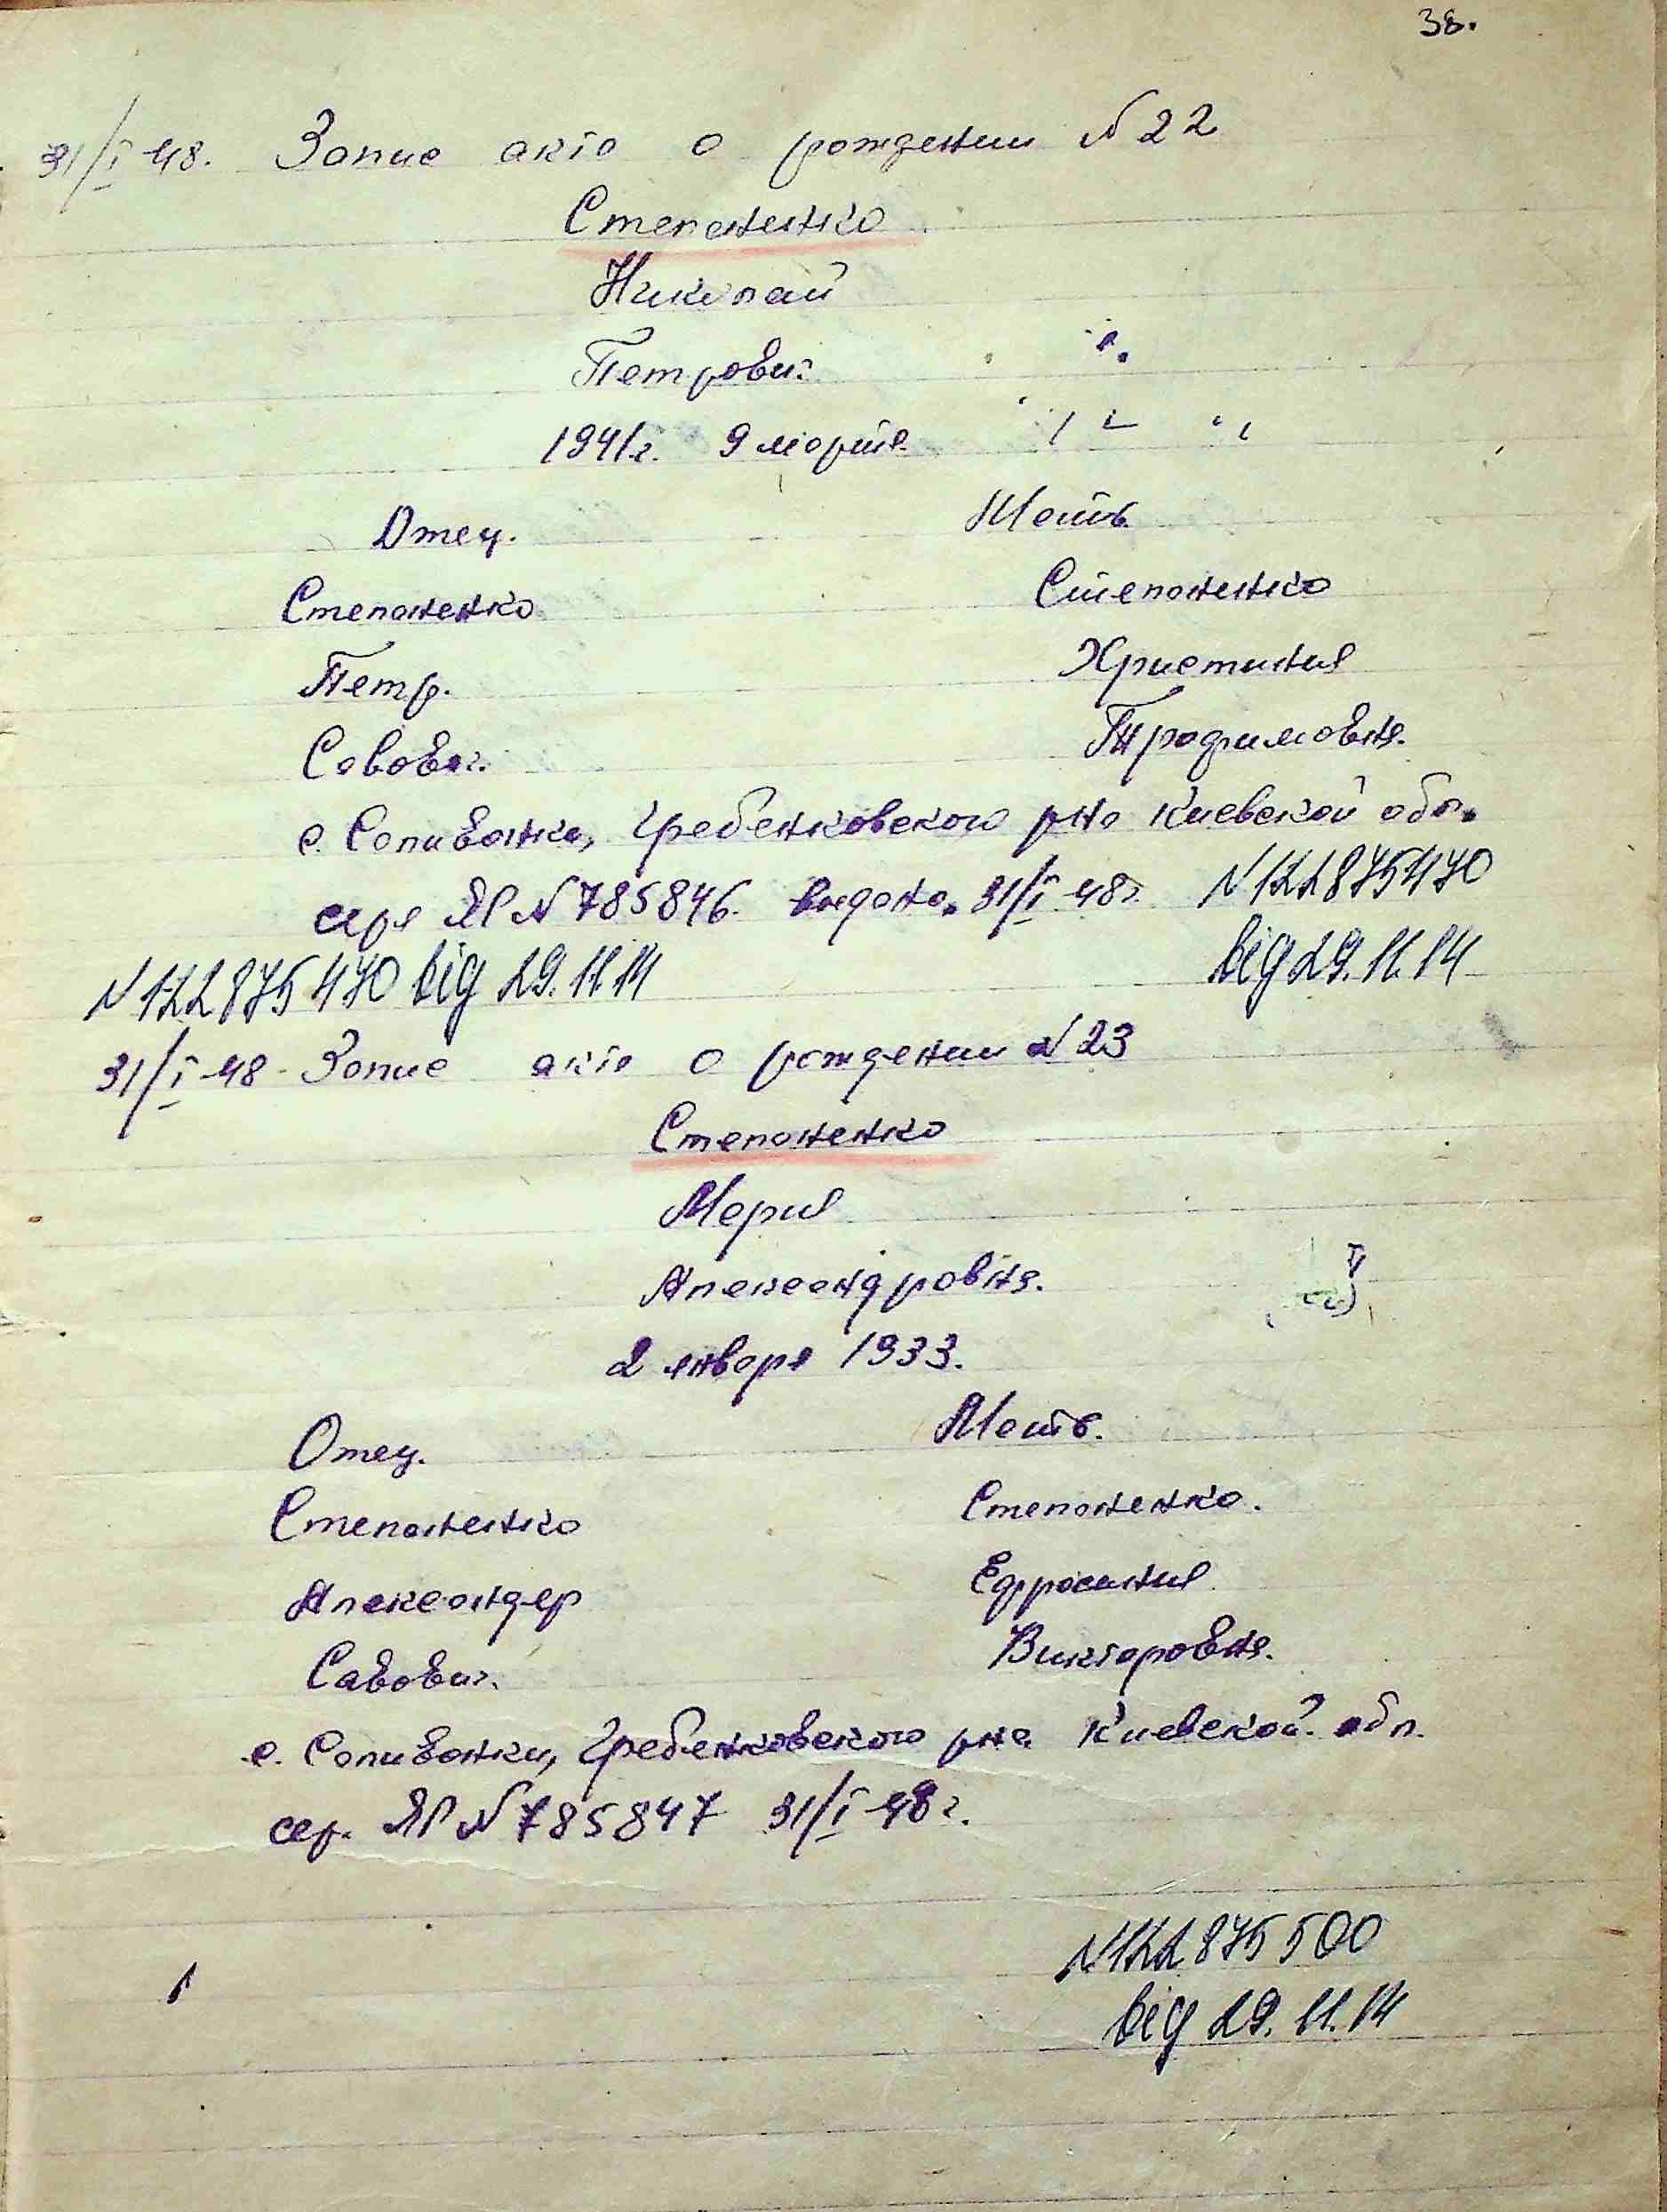 38.
31/I 48. Запис акта о рождении N 22
Степаненко
Николай
Петрович
1941г. 9 марта.
Отец. Мать.
Степаненко Степаненко
Петр. Христиния
Савович. Трофимовна.
с. Саливанки, Гребенковского р-на Киевской обл.
серя ЯР N 785846. выдана. 31/I 48г. N 122875470
від 29.11.14
N 122875470 від 29.11.14
31/I 48 Запис акта о рождении N 23
Степаненко
Мария
Александровна.
2 января 1933.
Отец. Мать.
Степаненко Степаненко.
Александер Ефросиния
Савович. Викторовна.
с. Саливанки, Гребенковского р-на Киевской обл.
сер. ЯР N 785847 31/I 48г.
N 122875500
від 29.11.14